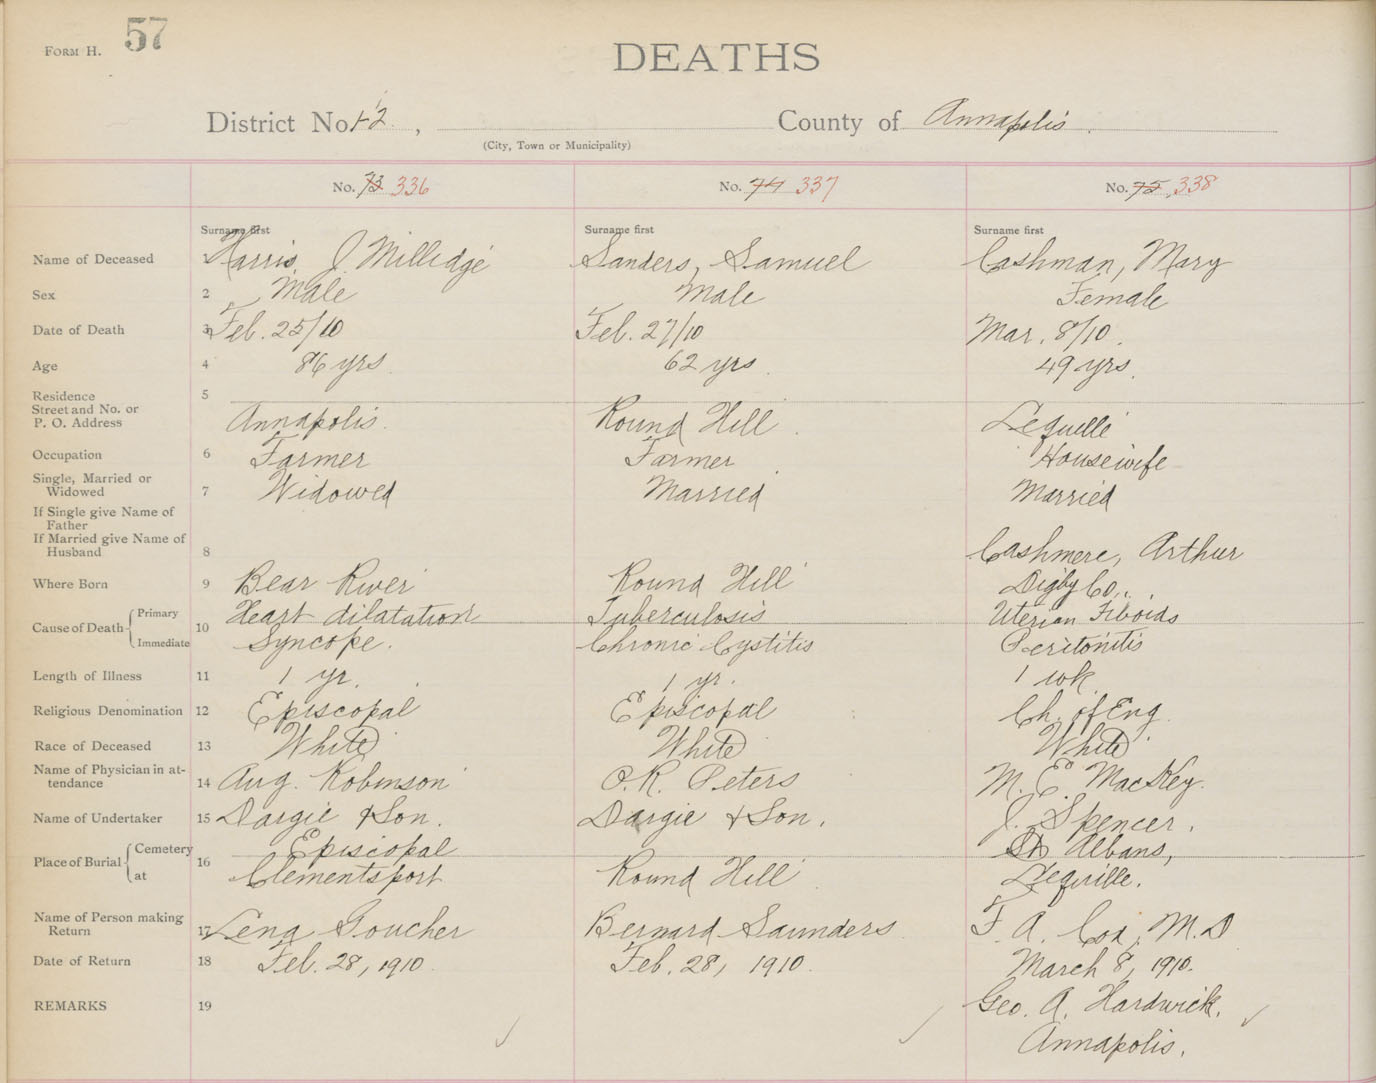 FORM H. 57
DEATHS
District No 1-2 , County of Annapolis
(City, Town or Municipality)
No. 73 336 No. 74 337 No. 75 338
Surname first Surname first Surname first
Name of Deceased 1 Harris, J Milledge Sanders, Samuel Cashman, Mary
Sex 2 Male Male Female
Date of Death 3 Feb. 25/10 Feb. 27/10 Mar. 8/10.
Age 4 86 yrs. 62 yrs. 49 yrs.
Residence 5
Street and No. or
P. O. Address Annapolis. Round Hill. Lequille
Occupation 6 Farmer Farmer Housewife
Single, Married or
Widowed 7 Widowed Married Married
If Single give Name of
Father
If Married give Name of
Husband 8 Cashmere, Arthur
Where Born 9 Bear River Round Hill Digby Co.
Cause of Death 10 Primary Heart dilatation Tuberculosis Uterian Fiboids
Immediate Syncope. Chronic Cystitis Peritonitis
Length of Illness 11 1 yr. 1 yr. 1 wk
Religious Denomination 12 Episcopal Episcopal Ch. of Eng.
Race of Deceased 13 White White White
Name of Physician in at-
tendance 14 Aug. Robinson O.R. Peters M. E. MacKey.
Name of Undertaker 15 Dargie & Son. Dargie & Son. J. Spencer.
Place of Burial 16 Cemetery Episcopal St Albans,
at Clementsport Round Hill Lequille.
Name of Person making
Return 17 Lena Goucher Bernard Saunders F. A. Cox, M.D
Date of Return 18 Feb. 28, 1910. Feb. 28, 1910. March 8, 1910.
REMARKS 19 Geo. A. Hardwick.
Annapolis.